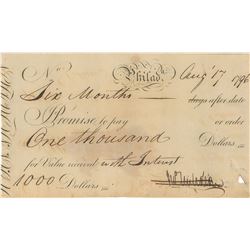 No. Philad. Aug 17 1796
Six Months days after date
I Promise to pay or order
One thousand Dollars
for Value received with Interest
1000 Dollars